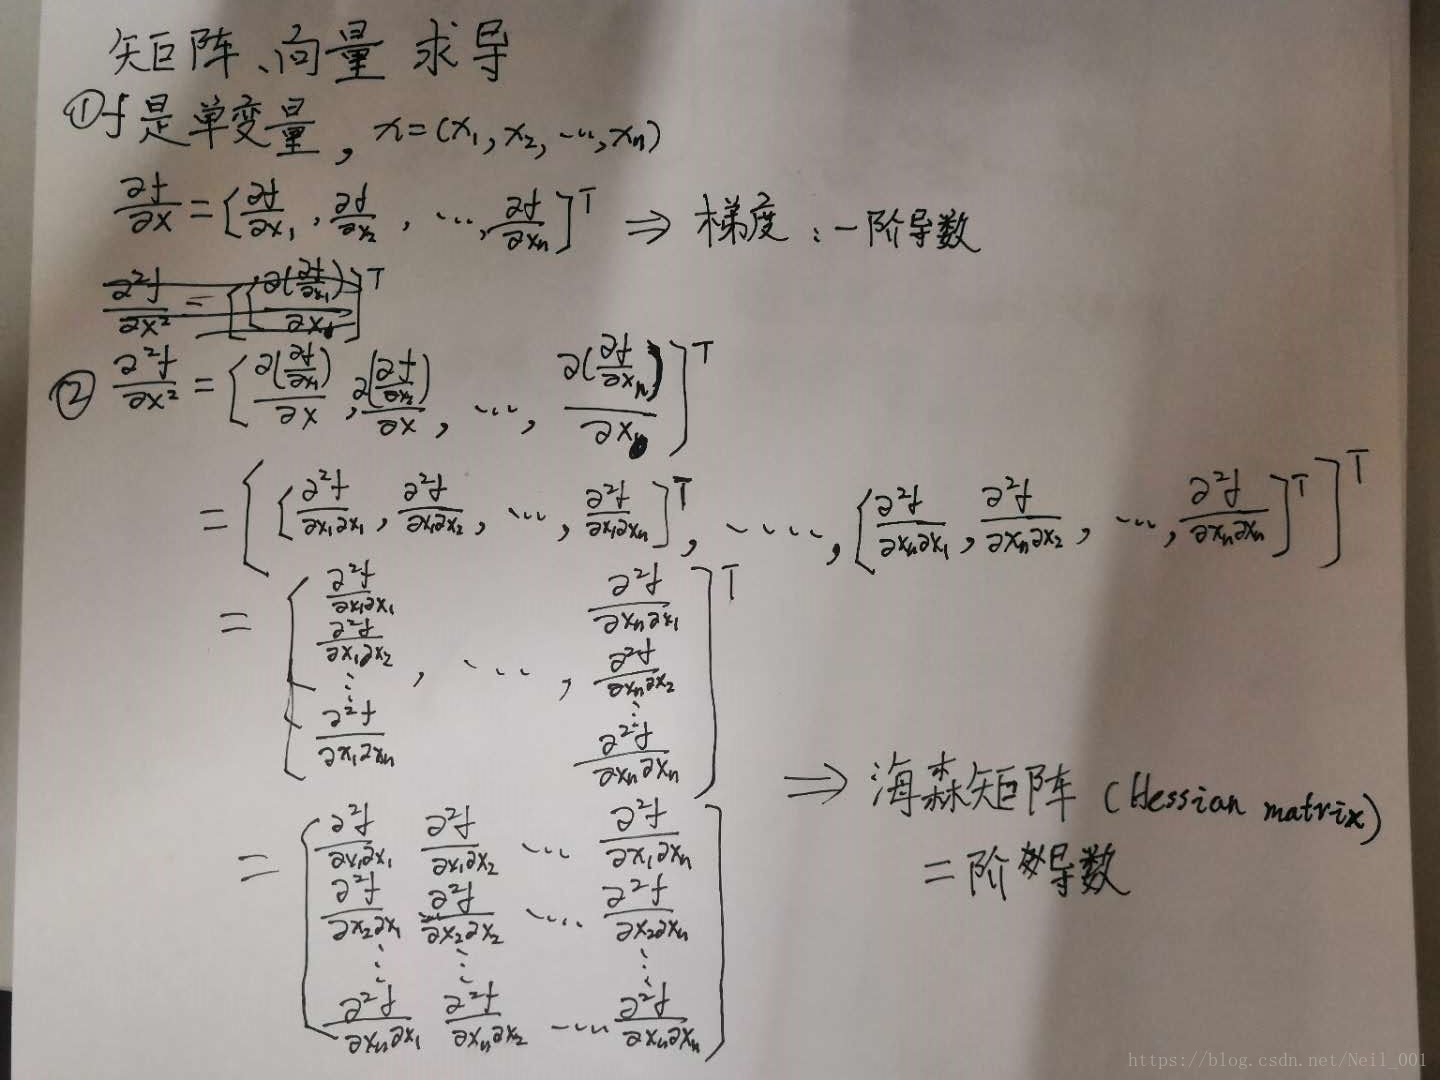 矩阵、向量 求导
①f是单变量, x=(x₁, x₂, ..., xₙ)
∂f/∂x = [∂f/∂x₁, ∂f/∂x₂, ..., ∂f/∂xₙ]ᵀ ⇒ 梯度:一阶导数
∂²f/∂x² = [[∂(∂f/∂x₁)/∂x₁]]ᵀ
② ∂²f/∂x² = [∂(∂f/∂x₁)/∂x, ∂(∂f/∂x₂)/∂x, ..., ∂(∂f/∂xₙ)/∂x]ᵀ
= [[∂²f/∂x₁∂x₁, ∂²f/∂x₁∂x₂, ..., ∂²f/∂x₁∂xₙ]ᵀ, ....., [∂²f/∂xₙ∂x₁, ∂²f/∂xₙ∂x₂, ..., ∂²f/∂xₙ∂xₙ]ᵀ]ᵀ
= [ ∂²f/∂x₁∂x₁ ∂²f/∂xₙ∂x₁ ]ᵀ
∂²f/∂x₁∂x₂ , ..., ∂²f/∂xₙ∂x₂
⋮ ⋮
∂²f/∂x₁∂xₙ ∂²f/∂xₙ∂xₙ
⇒ 海森矩阵 (Hessian matrix)
= [ ∂²f/∂x₁∂x₁ ∂²f/∂x₁∂x₂ ... ∂²f/∂x₁∂xₙ ]
二阶导数
∂²f/∂x₂∂x₁ ∂²f/∂x₂∂x₂ .... ∂²f/∂x₂∂xₙ
⋮ ⋮ ⋮
∂²f/∂xₙ∂x₁ ∂²f/∂xₙ∂x₂ ..... ∂²f/∂xₙ∂xₙ
https://blog.csdn.net/Neil_001